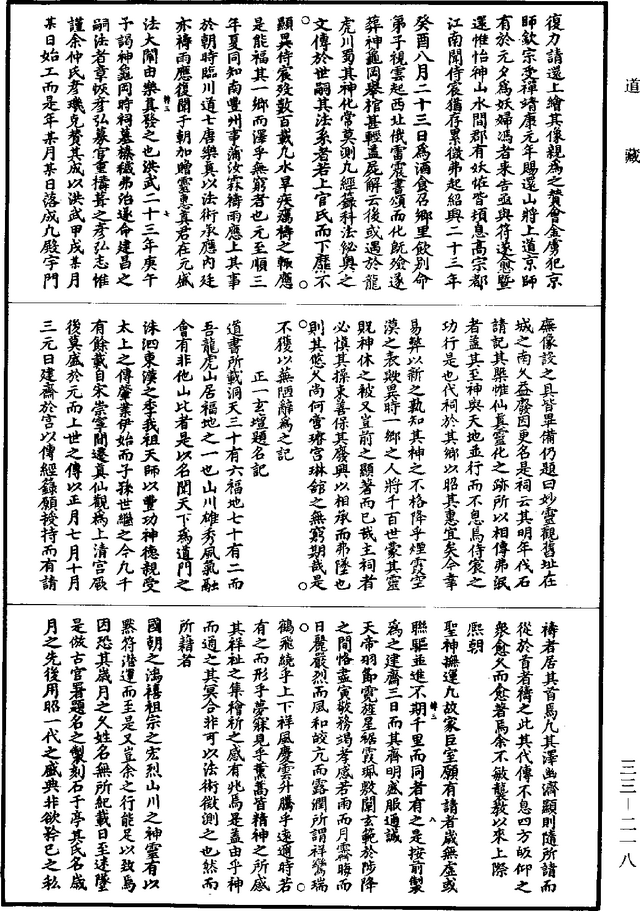 復力請還上繪其像親為之贊會金虜犯京
師欽宗受禪靖康元年賜還山將上道京師
有於元夕為妖婦馮者來告亟與符遂愈暨
還惟怡神山水間郡有妖怪皆頃息高宗都
江南聞侍宸猶存累徵弗起紹興二十三年
癸酉八月二十三日為酒食召鄉里飲別命
弟子視雲起西北俄雷震書頌而化既殮遂
葬神龜岡舉棺甚輕蓋屍解云後或遇於龍
虎川蜀其神化常莫測九經錄科法祕奧之
文傳於世嗣其法系者若上官氏而下靡不
顯異侍宸歿數百載凡水旱疾癘禱之輒應
是能福其一鄉而澤乎無窮者也元至順三
年夏同知南豐州事蒲汝霖禱雨應上其事
於朝時臨川道士唐樂真以法術承應內廷
亦禱雨應復聞于朝加贈靈惠真君在元盛
法大闡由樂真發之也洪武二十三年庚午
予謁神龜岡時祠墓撫穢弗治遂命建昌之
嗣法者章恢彥弘募官重搆葺之彥弘志惟
謹余仲氏彥璣克贊其成以洪武甲戌某月
某日始工而是年某月某日落成凡殿宇門
廡像設之具皆畢備仍題曰妙靈觀舊址在
城之南久益廢因更名是祠云其明年伐石
請記其槩惟仙真靈化之跡所以相傳弗泯
者蓋其至神與天地並行而不息焉侍宸之
功行是也代祠於其鄉以昭其惠宜矣今幸
易弊以新之孰知其神之不格降乎煙霞空
漠之表歟異時一鄉之人將千百世蒙其靈
貺神休之被又豈前之顯著而已哉主祠者
必慎其操束善保其廢興以相承而弗墜也
則其悠久尚何雪壇宮琳館之無窮期哉是
不獲以蕪陋辭為之記
正一玄壇題名記
道書所載洞天三十有六福地七十有二而
吾龍虎山居福地之一也山川雄秀風氣融
會有非他山比者是以名聞天下為道門之
洙泗東漢之季我祖天師以豐功神德親受
太上之傳肇業伊始而子孫世繼之今九千
有餘載自宋崇寧間遷真仙觀為上清宮厥
後莫盛於元而上世之傳以正月七月十月
三元日建齋於宮以傳經籙願授持而有請
禱者居其首焉凡其澤幽濟顯則隨所請而
從於首者禱之此其代傳不息四方皈仰之
衆愈久而愈著焉余不敏襲教以來上際
熙朝
聖神撫運凡故家巨室願有請者歲無虛或
聯驅並進不期千里而同者有之是按前製
為之建齋三日而其齊明盛服通誠
天帝羽節霓旌星裾霞珮敷闡玄範於陟降
之間恪盡寅敬務竭孝感若雨而月霽晦而
日麗嚴烈而風和皎亢而露潤所謂祥鸞瑞
鶴飛繞乎上下祥風慶雲升騰乎遠邇時若
有之而形乎夢寐見乎薰蒿皆精神之所感
其祥祉之集禬祈之感有兆焉是蓋由乎神
而通之其冥合非可以法術徵測之也然而
所藉者
國朝之鴻禧祖宗之宏烈山川之神靈有以
黙符潛運而至是又豈余之行能足以致焉
因恐其歲月之久姓名無所紀載日至迷墜
是倣古官署題名之製刻石于亭其氏名歲
月之先後用昭一代之盛典非欲矜己之私
道藏
三三－二一八